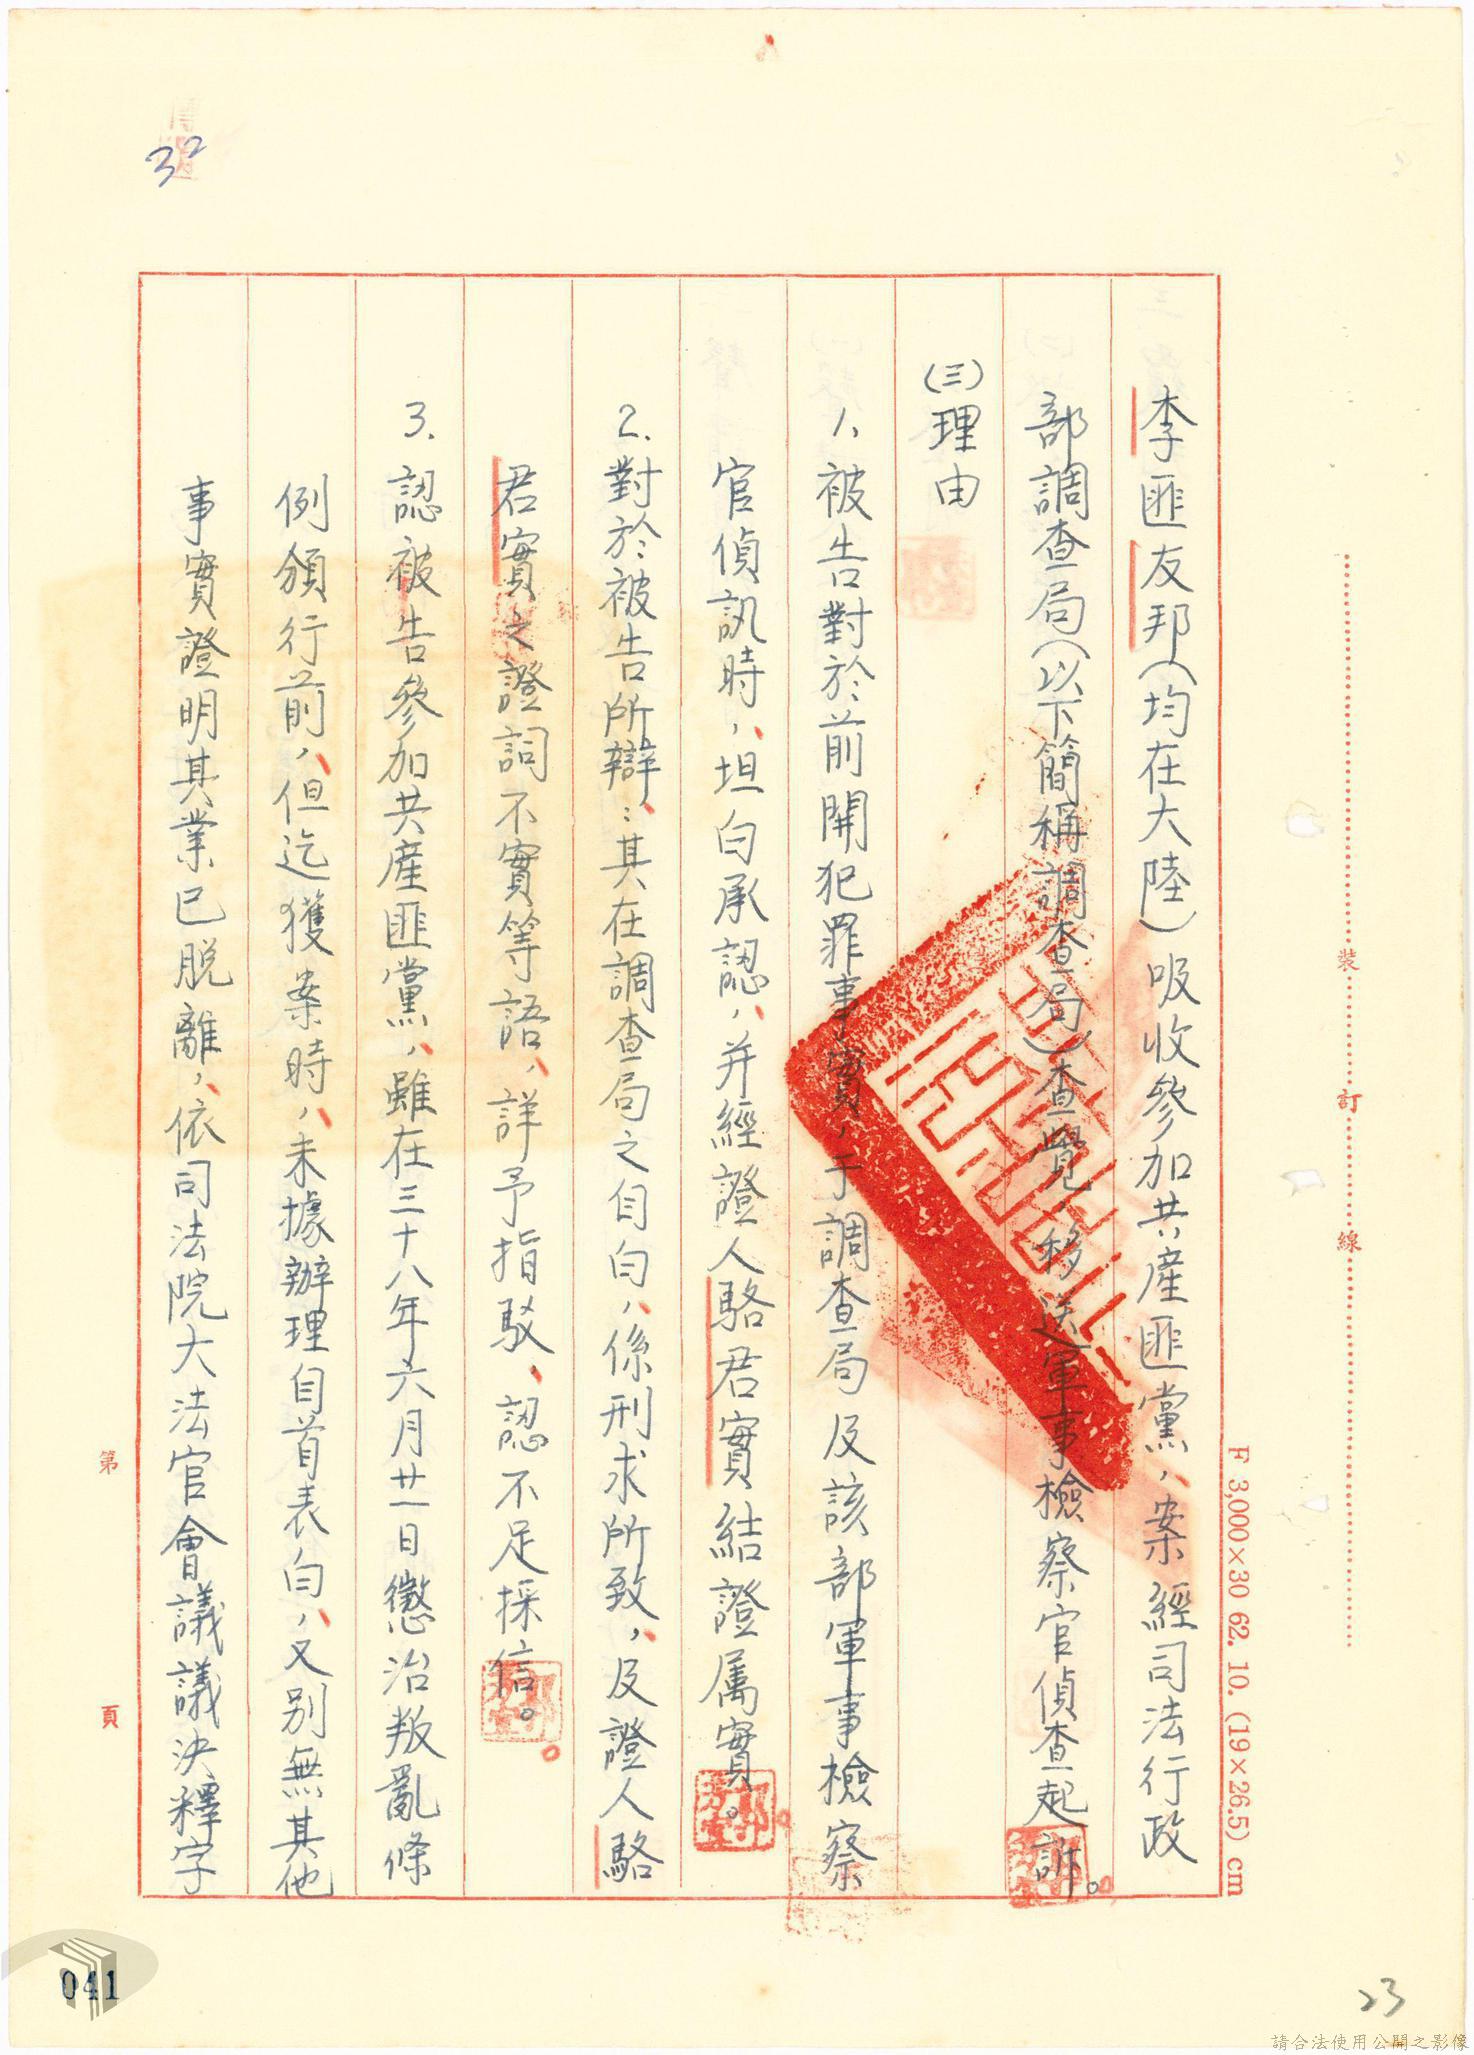 李匪友邦（均在大陸）吸收參加共產匪黨，案經司法行政
部調查局（以下簡稱調查局）查覺，移送軍事檢察官偵查起訴。
(三)理由
1、被告對於前開犯罪事實，于調查局及該部軍事檢察
官偵訊時，坦白承認，并經證人駱君實結證屬實。
2.對於被告所辯：其在調查局之自白，係刑求所致，及證人駱
君實之證詞不實等語，詳予指駁，認不足採信。
3.認被告參加共產匪黨，雖在三十八年六月廿一日懲治叛亂條
例頒行前，但迄獲案時，未據辦理自首表白，又別無其他
事實證明其業已脫離，依司法院大法官會議議決釋字
裝
訂
線
F 3,000×30 62. 10. (19×26.5) cm
第
頁
32
041
23
請合法使用公開之影像